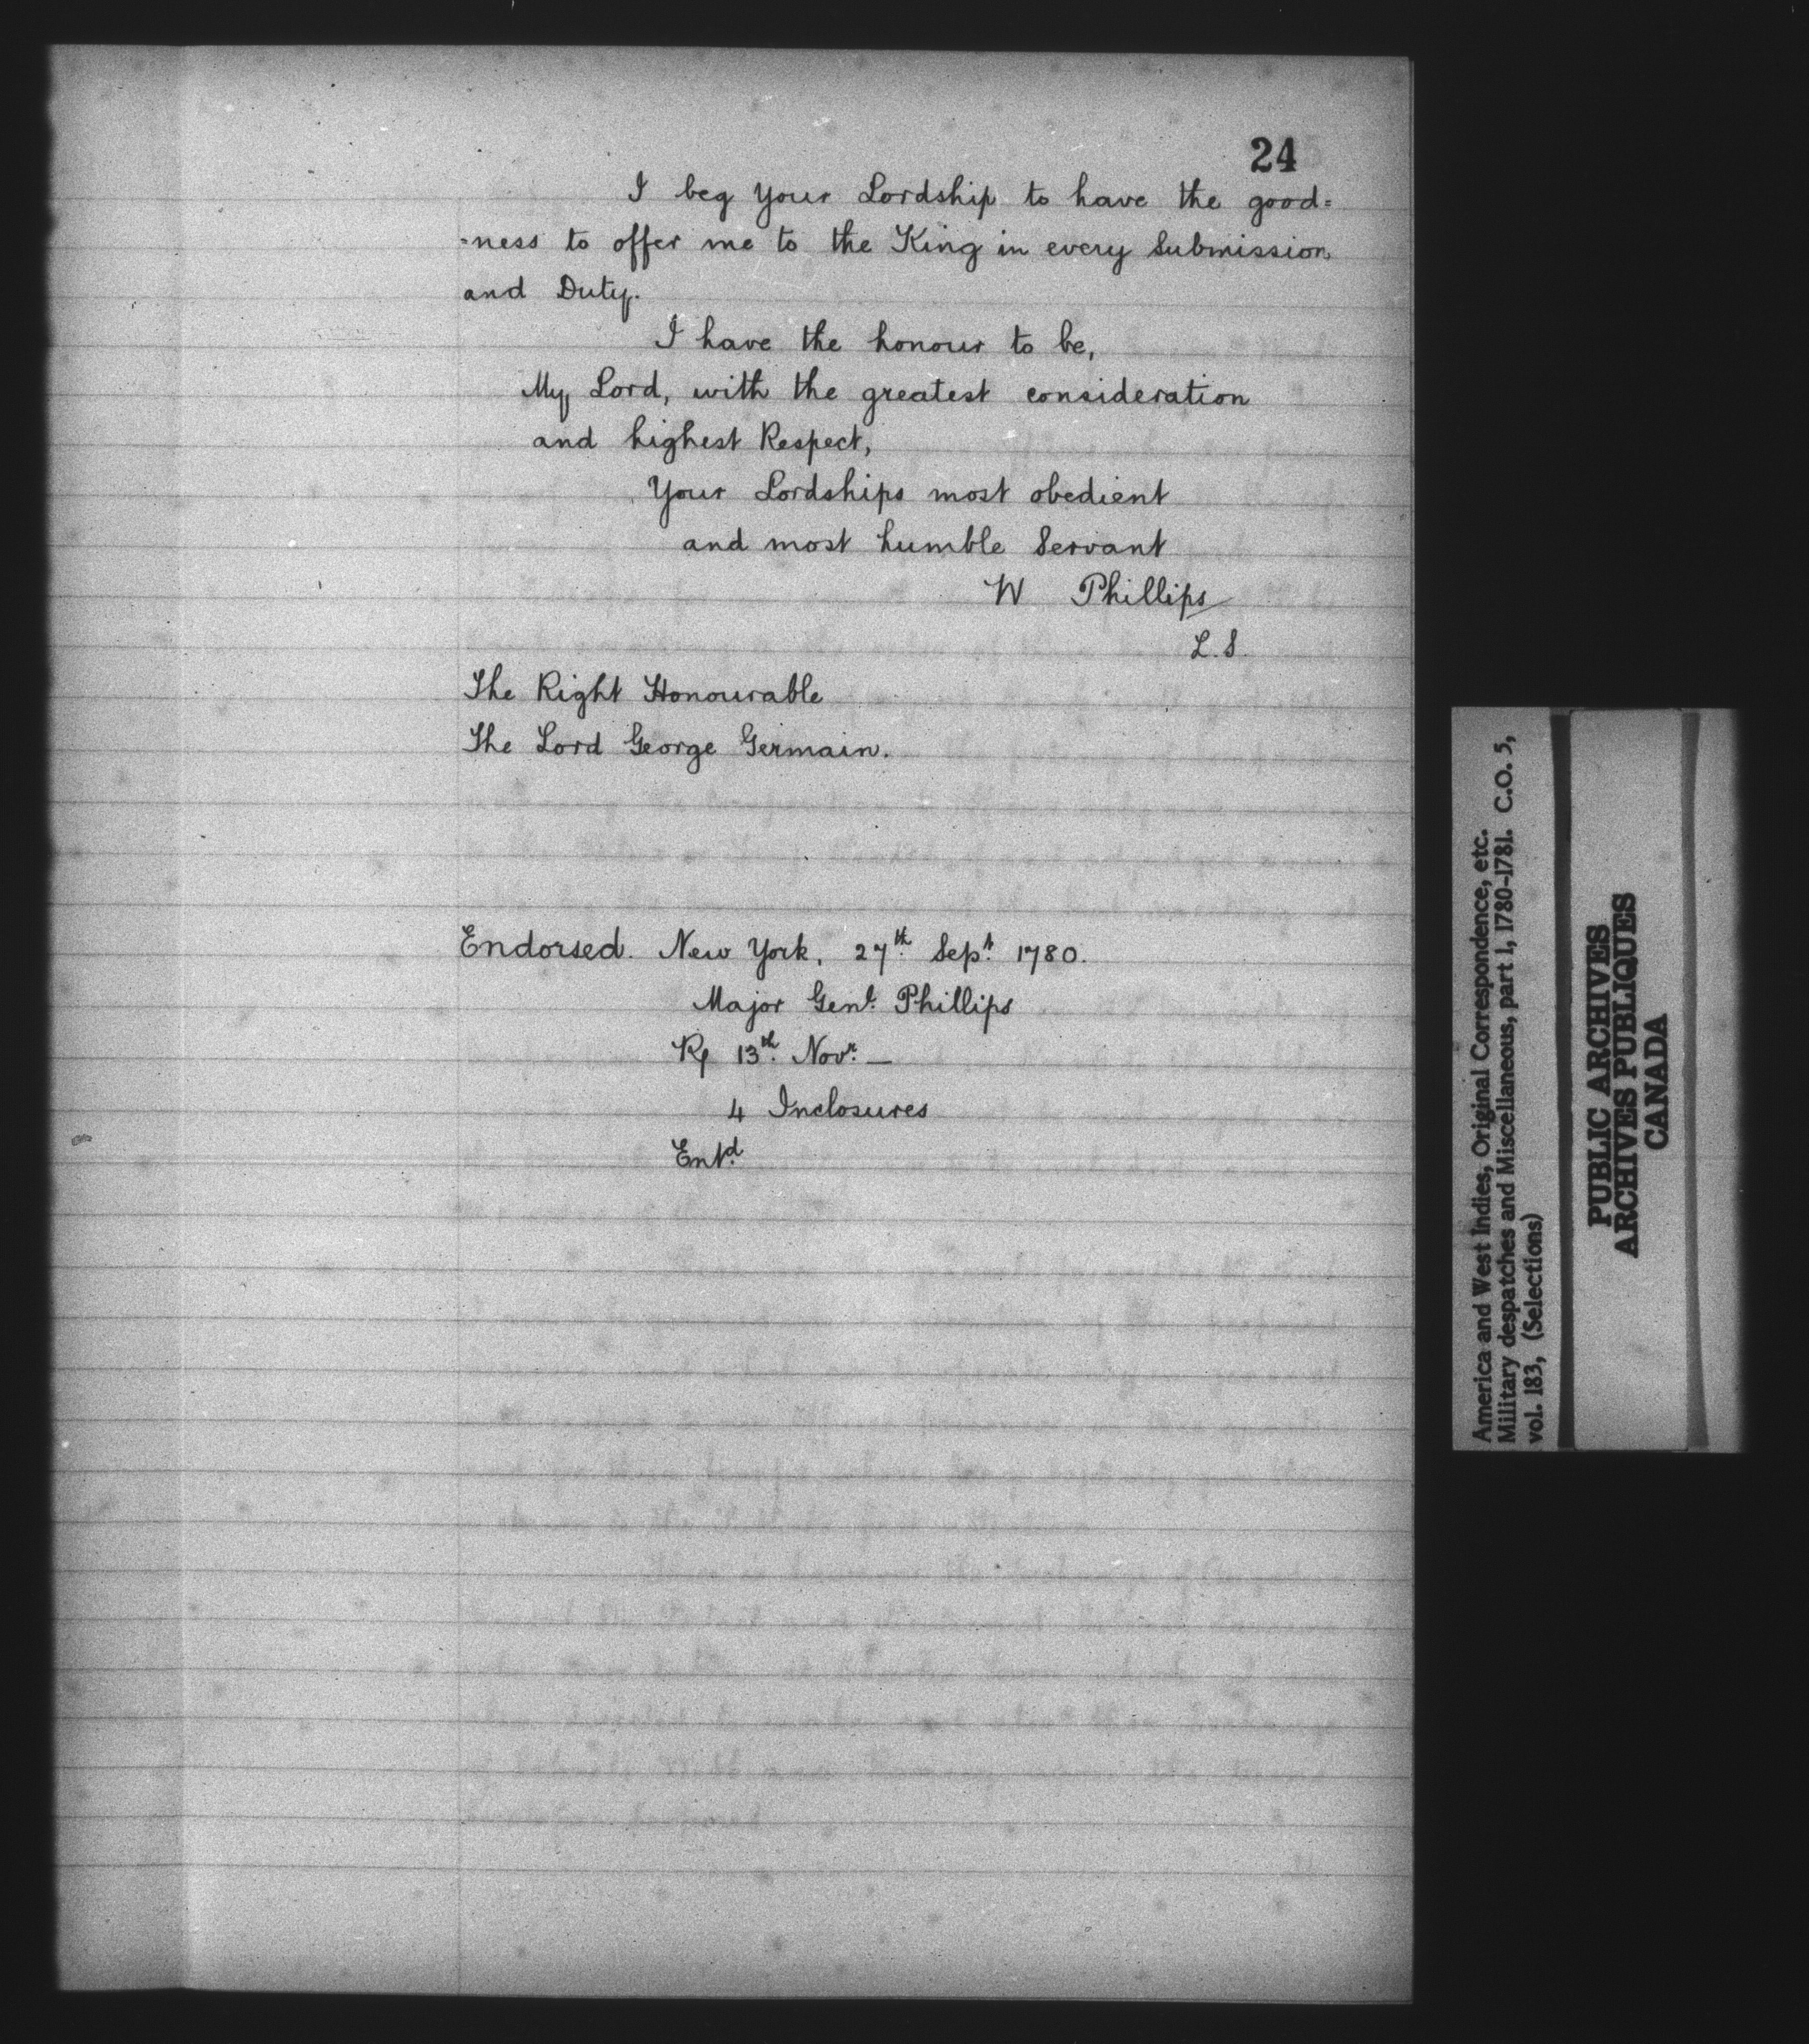 24
I beg Your Lordship to have the good=
=ness to offer me to the King in every Submission
and Duty.
I have the honour to be,
My Lord, with the greatest consideration
and highest Respect,
Your Lordships most obedient
and most humble Servant
W Phillips
L.S.
The Right Honourable
The Lord George Germain.
Endorsed. New York, 27th Sept 1780.
Major Genl. Phillips
13th Novr. —
4 Inclosures
Entd.
America and West Indies, Original Correspondence, etc.
Military despatches and Miscellaneous, part 1, 1780-1781. C.O. 5,
vol. 183, (Selections)
PUBLIC ARCHIVES
ARCHIVES PUBLIQUES
CANADA